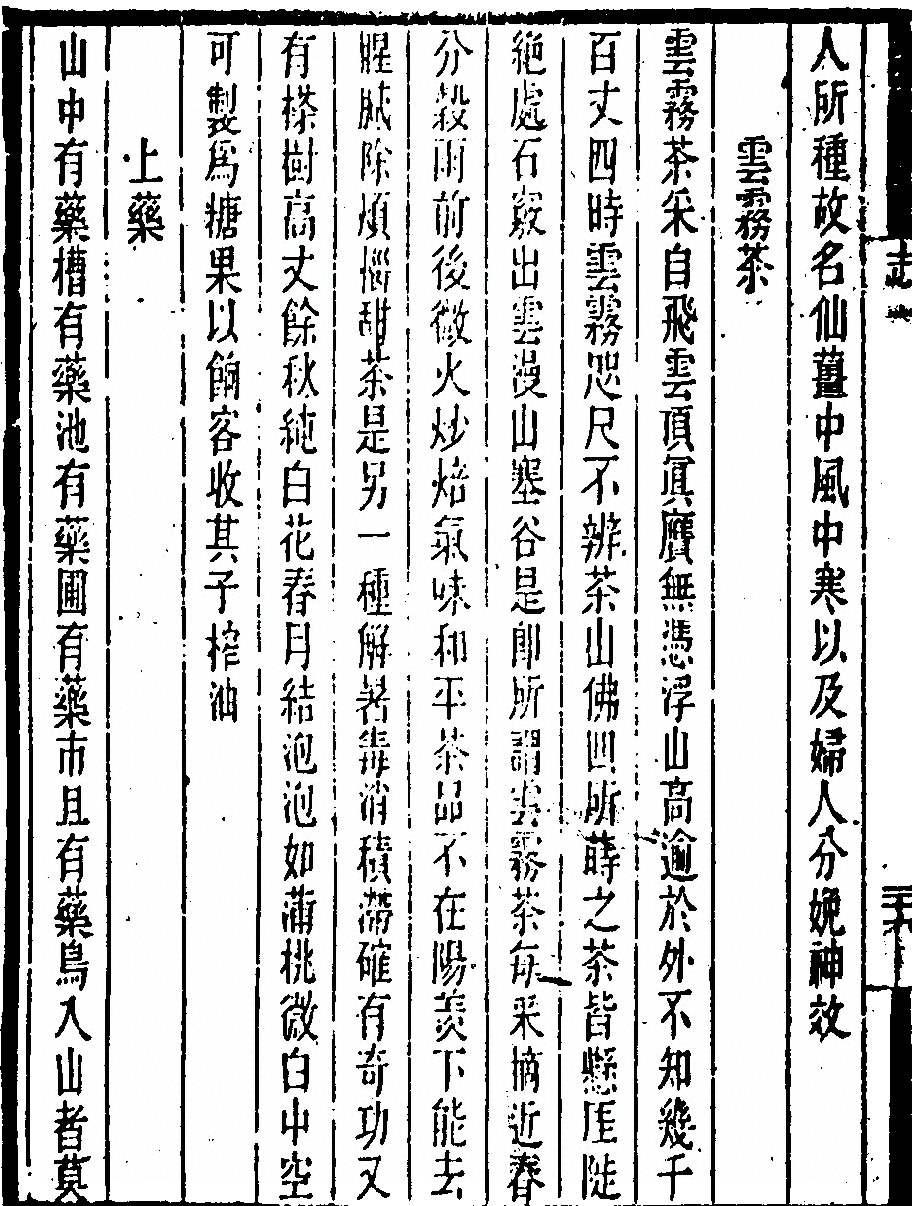 人所種故名仙薑中風中寒以及婦人分娩神效
雲霧茶
雲霧茶采自飛雲頂眞贋無憑浮山高逾於外不知幾千
百丈四時雲霧咫尺不辨茶山佛凹所蒔之茶皆懸厓陡
絶處石竅出雲漫山塞谷是卽所謂雲霧茶每采摘近春
分穀雨前後微火炒焙氣味和平茶品不在陽羨下能去
腥膩除煩惱甜茶是另一種解暑毒消積滯確有奇功又
有榤樹高丈餘秋純白花春月結泡泡如蒲桃微白中空
可製爲糖果以餉客收其子榨油
上藥
山中有藥槽有藥池有藥圃有藥市且有藥鳥入山者莫
志